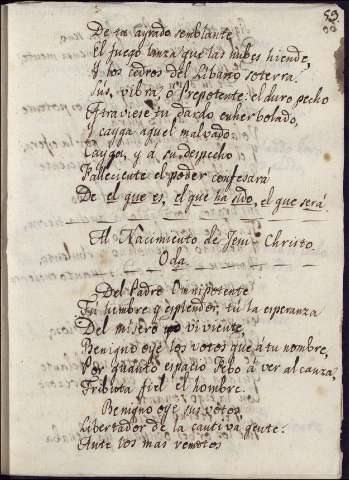 59
De tu ayrado semblante
El fuego lanza que las nubes hiende,
Y los cedros del Libano soterra.
Sus, vibra, ô Prepotente: el duro pecho
Atraviese tu dardo enherbolado,
Y cayga aquel malvado:
Cayga, y a su despecho
Falleciente el poder confesará
De el que es, el que ha sido, el que será.
Al Nacimiento de Jesu-Christo
Oda.
Del Padre Omnipotente
Tu lumbre, y esplendor, tú la esperanza
Del misero viviente,
Benigno oye los votos que á tu nombre,
Por quanto espacio Febo â ver alcanza,
Tributa fiel el hombre.
Benigno oye sus votos
Libertador de la cautiva gente:
Ante los mas remotos